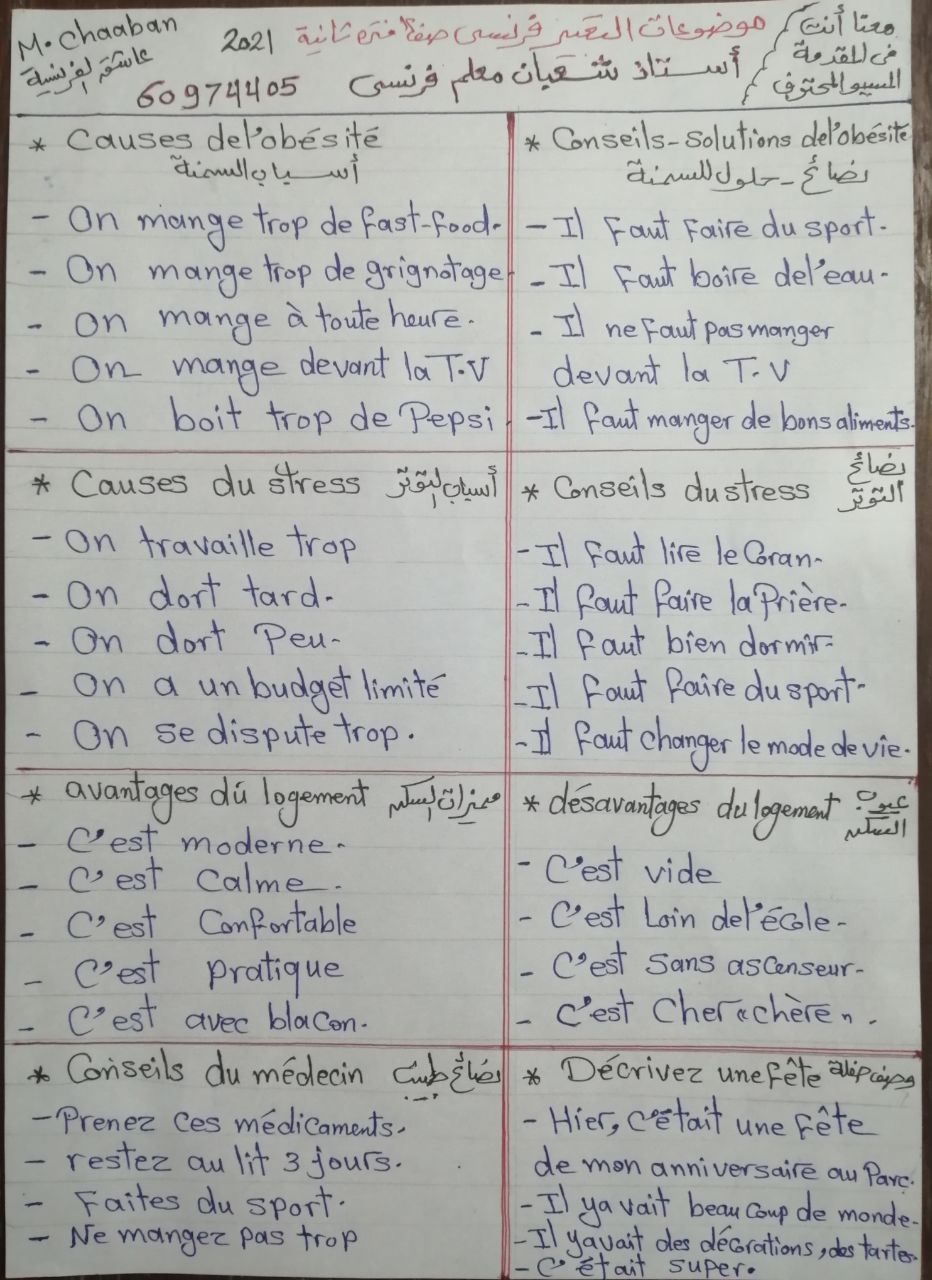 M. Chaaban
عاشق الفرنسية
موضوعات التعبير فرنسى صف١٠ فترة ثانية 2021
أستاذ شعبان معلم فرنسى
60974405
معنا أنت
فى المقدمة
المسيو المحترف
* Causes de l'obésité
أسباب السمنة
- On mange trop de fast-food.
- On mange trop de grignotage
- On mange à toute heure.
- On mange devant la T.V
- On boit trop de Pepsi.
* Conseils-solutions de l'obésité
نصائح - حلول للسمنة
- Il faut faire du sport.
- Il faut boire de l'eau.
- Il ne faut pas manger
devant la T.V
- Il faut manger de bons aliments.
* Causes du stress أسباب التوتر
- On travaille trop
- On dort tard.
- On dort Peu-
- On a un budget limité
- On se dispute trop.
* Conseils du stress نصائح
التوتر
- Il faut lire le Coran.
- Il faut faire la Prière.
- Il faut bien dormir-
- Il faut faire du sport-
- Il faut changer le mode de vie.
* avantages du logement مميزات السكن
- C'est moderne.
- C'est Calme.
- C'est Confortable
- C'est pratique
- C'est avec blacon.
* désavantages du logement عيوب
السكن
- C'est vide
- C'est Loin de l'école-
- C'est sans ascenseur-
- C'est Cher «chère».
* Conseils du médecin نصائح طبيب
- Prenez ces médicaments.
- restez au lit 3 jours.
- Faites du sport.
- Ne mangez pas trop
* Décrivez une fête وصف حفلة
- Hier, c'était une fête
de mon anniversaire au Parc.
- Il ya vait beaucoup de monde-
- Il yavait des décorations, des tartes.
- C'était super.